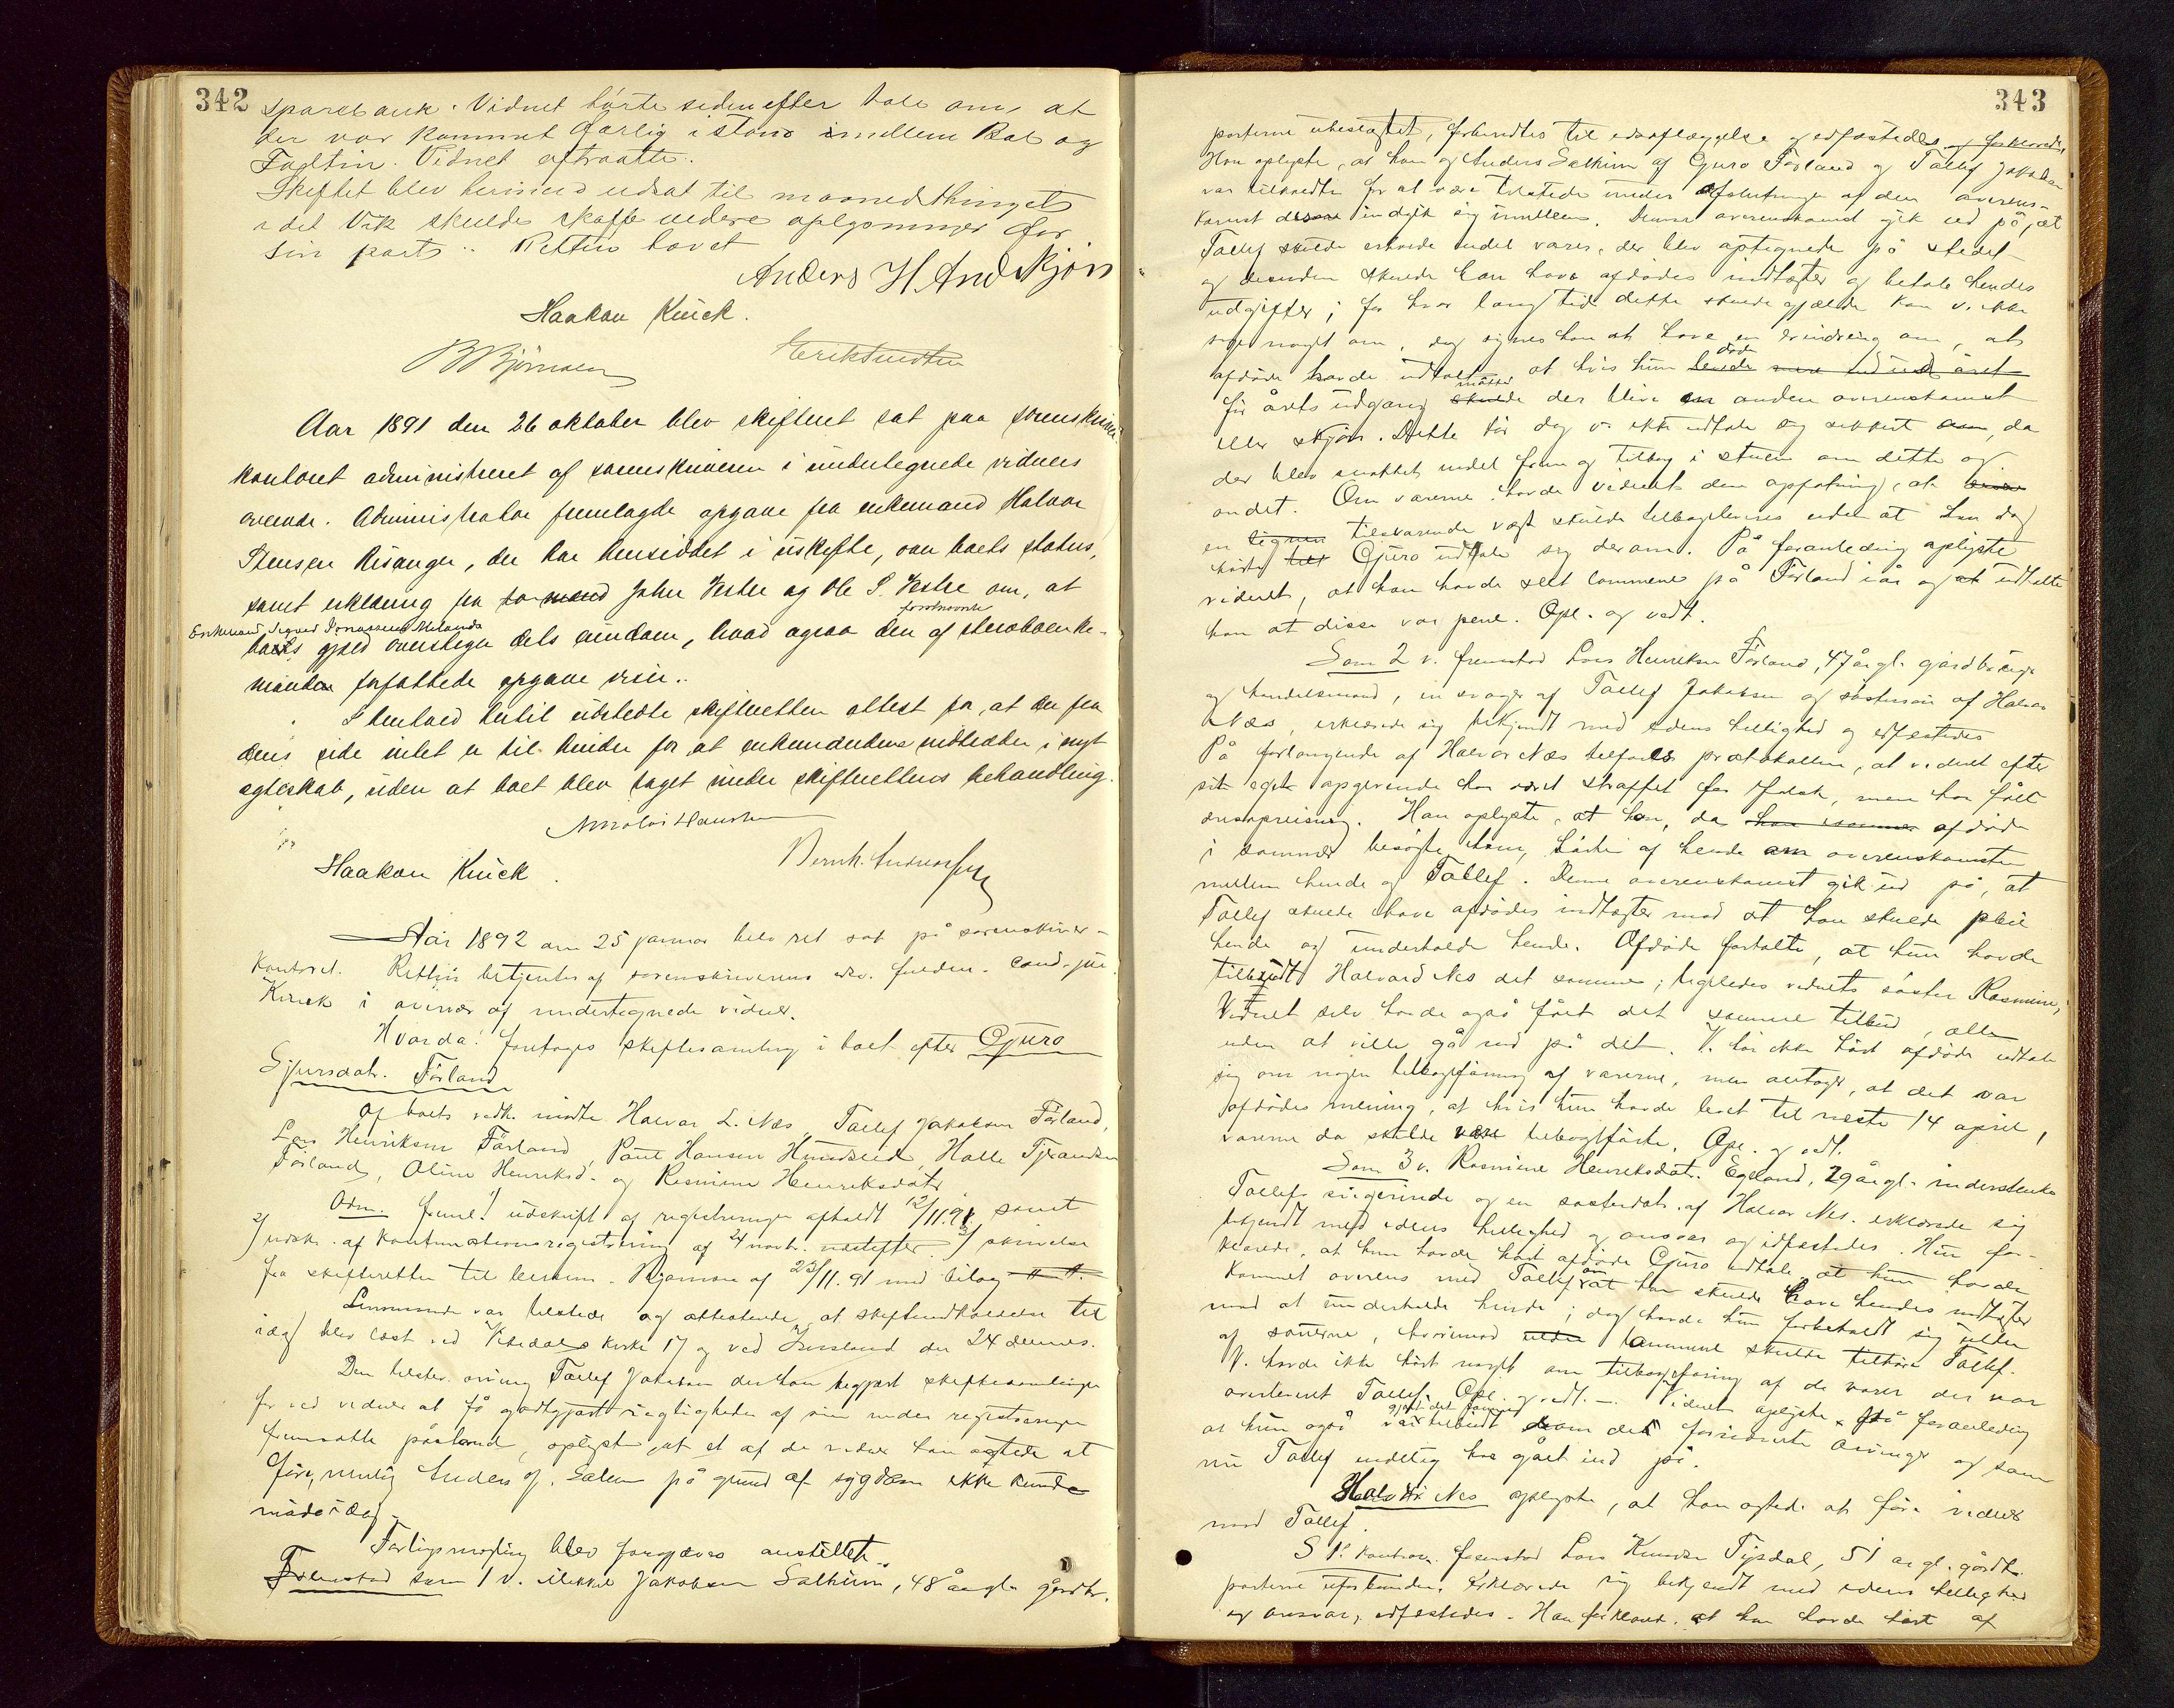 342
sparebank. Vidnet hørte siden efter tale om, at
der var kommet forlig i stand imellem Bal og
Vidnet aftraatte.
Skiftet blev herimed udsat til maanedsthinget
idet Vik skulde skaffe videre oplysninger for
sin part. Retten hævet
Anders H. And
Haakon Kinck.
B Bjørnsen
Aar 1891 den 26 oktober blev skifteret sat paa sorenskriver
kontoret administreret af sorenskriveren i undertegnede vidners
overvær. Administrator fremlagde opgave fra enkemand Halvor
Stensen Risanger, der har hensiddet i uskifte, om boets status,
samt erklæring fra to mænd John Vestre og Ole S. Vestre om, at
boets gjæld overstiger dets eiendom, hvad ogsaa den af
foranstaaende
manden forfattede opgave viser.
I henhold hertil udstedte skifteretten attest for, at der fra
dens side intet er til hinder for at enkemanden indtræder i nyt
egteskab, uden at boet blev taget under skifterettens behandling.
Nicolai Hansen
Haakon Kinck.
Aar 1892 den 25 januar blev ret sat på sorenskriver-
kontoret. Retten betjentes af sorenskriverens edsv. fuldm. cand. jur.
Kinck i overvær af undertegnede vidner.
Hvorda: foretoges skiftesamling i boet efter Guro
Sjursdat. Førland
Af boets vedk. mødte Halvar L. Nes, Tollef Jakobsen Førland,
Lars Henriksen Førland, Poul Hansen Hundseid, Halle Tjerandsen
Førland, Oline Henriksd. og Rasmine Henriksdatr
Adm. freml. 1/ udskrift af registreringen afholdt 12/11.91 samt
2/ udskr. af kontinuationsregistrering af 24 novbr. næstefter 3/ skrivelse
fra skifteretten til lensm. Bjørnsen af 23/11.91 med bilag
Lensmanden var tilstede og attesterede, at skifteindkaldelse til
idag blev læst ved Vikedals kirke 17 og ved den 24 dennes.
Den tilstedev. arving Tollef Jakobsen der har begjært skiftesamlingen
for ved vidner at få godtgjort rigtigheden af sin under registreringen
fremsatte påstand, oplyste, at et af de vidner han agtede at
føre, nemlig Anders J. Salen på grund af sygdom ikke kunde
møde idag.
Forligsmægling blev forgjæves anstillet.
Fremstod som 1 v. Mikkel Jakobsen Salhuim, 48 årgl. gårdbr.
343
parterne ubeslægtet, formanedes til edsaflæggelse og edfæstedes og forklarede,
Han oplyste, at han og Anders Salhuim af Guro Førland og Tollef Jakobsen
var tilkaldte for at være tilstede under afslutningen af den overens-
komst disse indgik sig imellem. Denne overenskomst gik ud på, at
Tollef skulde erholde endel varer, der blev optegnede på stedet
og desuden skulde han have afdødes indtægter og betale hendes
udgifter; for hvor lang tid dette skulde gjælde kan v. ikke
sige noget om, dog synes han at have en erindring om, at
afdøde havde udtalt, at hvis hun døde
før årets udgang måtte der blive en anden overenskomst
eller skjøn. Dette tør dog v. ikke udtale sig sikkert om, da
der blev snakket endel frem og tilbage i stuen om dette og
andet. Om varerne havde vidnet den opfatning, at
en tilsvarende vægt skulde tilbageleveres uden at han dog
hørte Guro udtale sig derom. På foranledning oplyste
vidnet, at han havde seet lammene på Førland i år og udtalte
han at disse var pene. Opl. og vedt.
Som 2 v. fremstod Lars Henriksen Førland, 47 årgl. gårdbruger
og handelsmand, en svoger af Tollef Jakobsen og søstersøn af Halvar
Nes, erklærede sig bekjendt med edens hellighed og edfæstedes
På forlangende af Halvar Nes tilføres protokollen, at vidnet efter
sit eget opgivende har været straffet for falsk, men har fået
æresopreisning. Han oplyste, at han, da afdøde
i sommer besøgte ham, hørte af hende om overenskomsten
mellem hende og Tollef. Denne overenskomst gik ud på, at
Tollef skulde have afdødes indtægter mod at han skulde pleie
hende og underholde hende. Afdøde fortalte, at hun havde
tilbudt Halvard Nes det samme; ligeledes vidnets søster Rasmine;
Vidnet selv havde også fået det samme tilbud, alle
uden at ville gå ind på det. V. har ikke hørt afdøde udtale
sig om nogen tilbageføring af varerne, men antager, at det var
afdødes mening, at hvis hun havde levet til næste 14 april,
varerne da skulde være tilbageførte. Opl. og vedt.
Som 3 v. Rasmine Henriksdat. Egeland, 29 årgl.
Tollefs svigerinde og en søsterdat. af Halvar Nes. erklærede sig
bekjendt med edens hellighed og ansvar og edfæstedes. Hun for-
klarede, at hun havde hørt afdøde Guro udtale at hun havde
kommet overens med Tollef om at han skulde have hendes indtægter
mod at underholde hende; dog havde hun forbeholdt sig ulden
af sauerne, hvorimod lammene skulde tilhøre Tollef.
V. havde ikke hørt noget om tilbageføring af de varer der var
overleveret Tollef. Opl. og vedt. — Vidnet oplyste på foranledning
at hun også var tilbudt som de forrige arvinger og som
nu Tollef endelig har gået ind på.
Halvar Nes oplyste, at han agtede at føre vidner
mod Tollef.
S 1. kontrav. fremstod Lars Knudsen Tysdal, 51 årgl. gårdbr.
parterne uforbunden. Erklærede sig bekjendt med edens hellighed
og ansvar, edfæstedes. Han forklared. at han havde hørt af